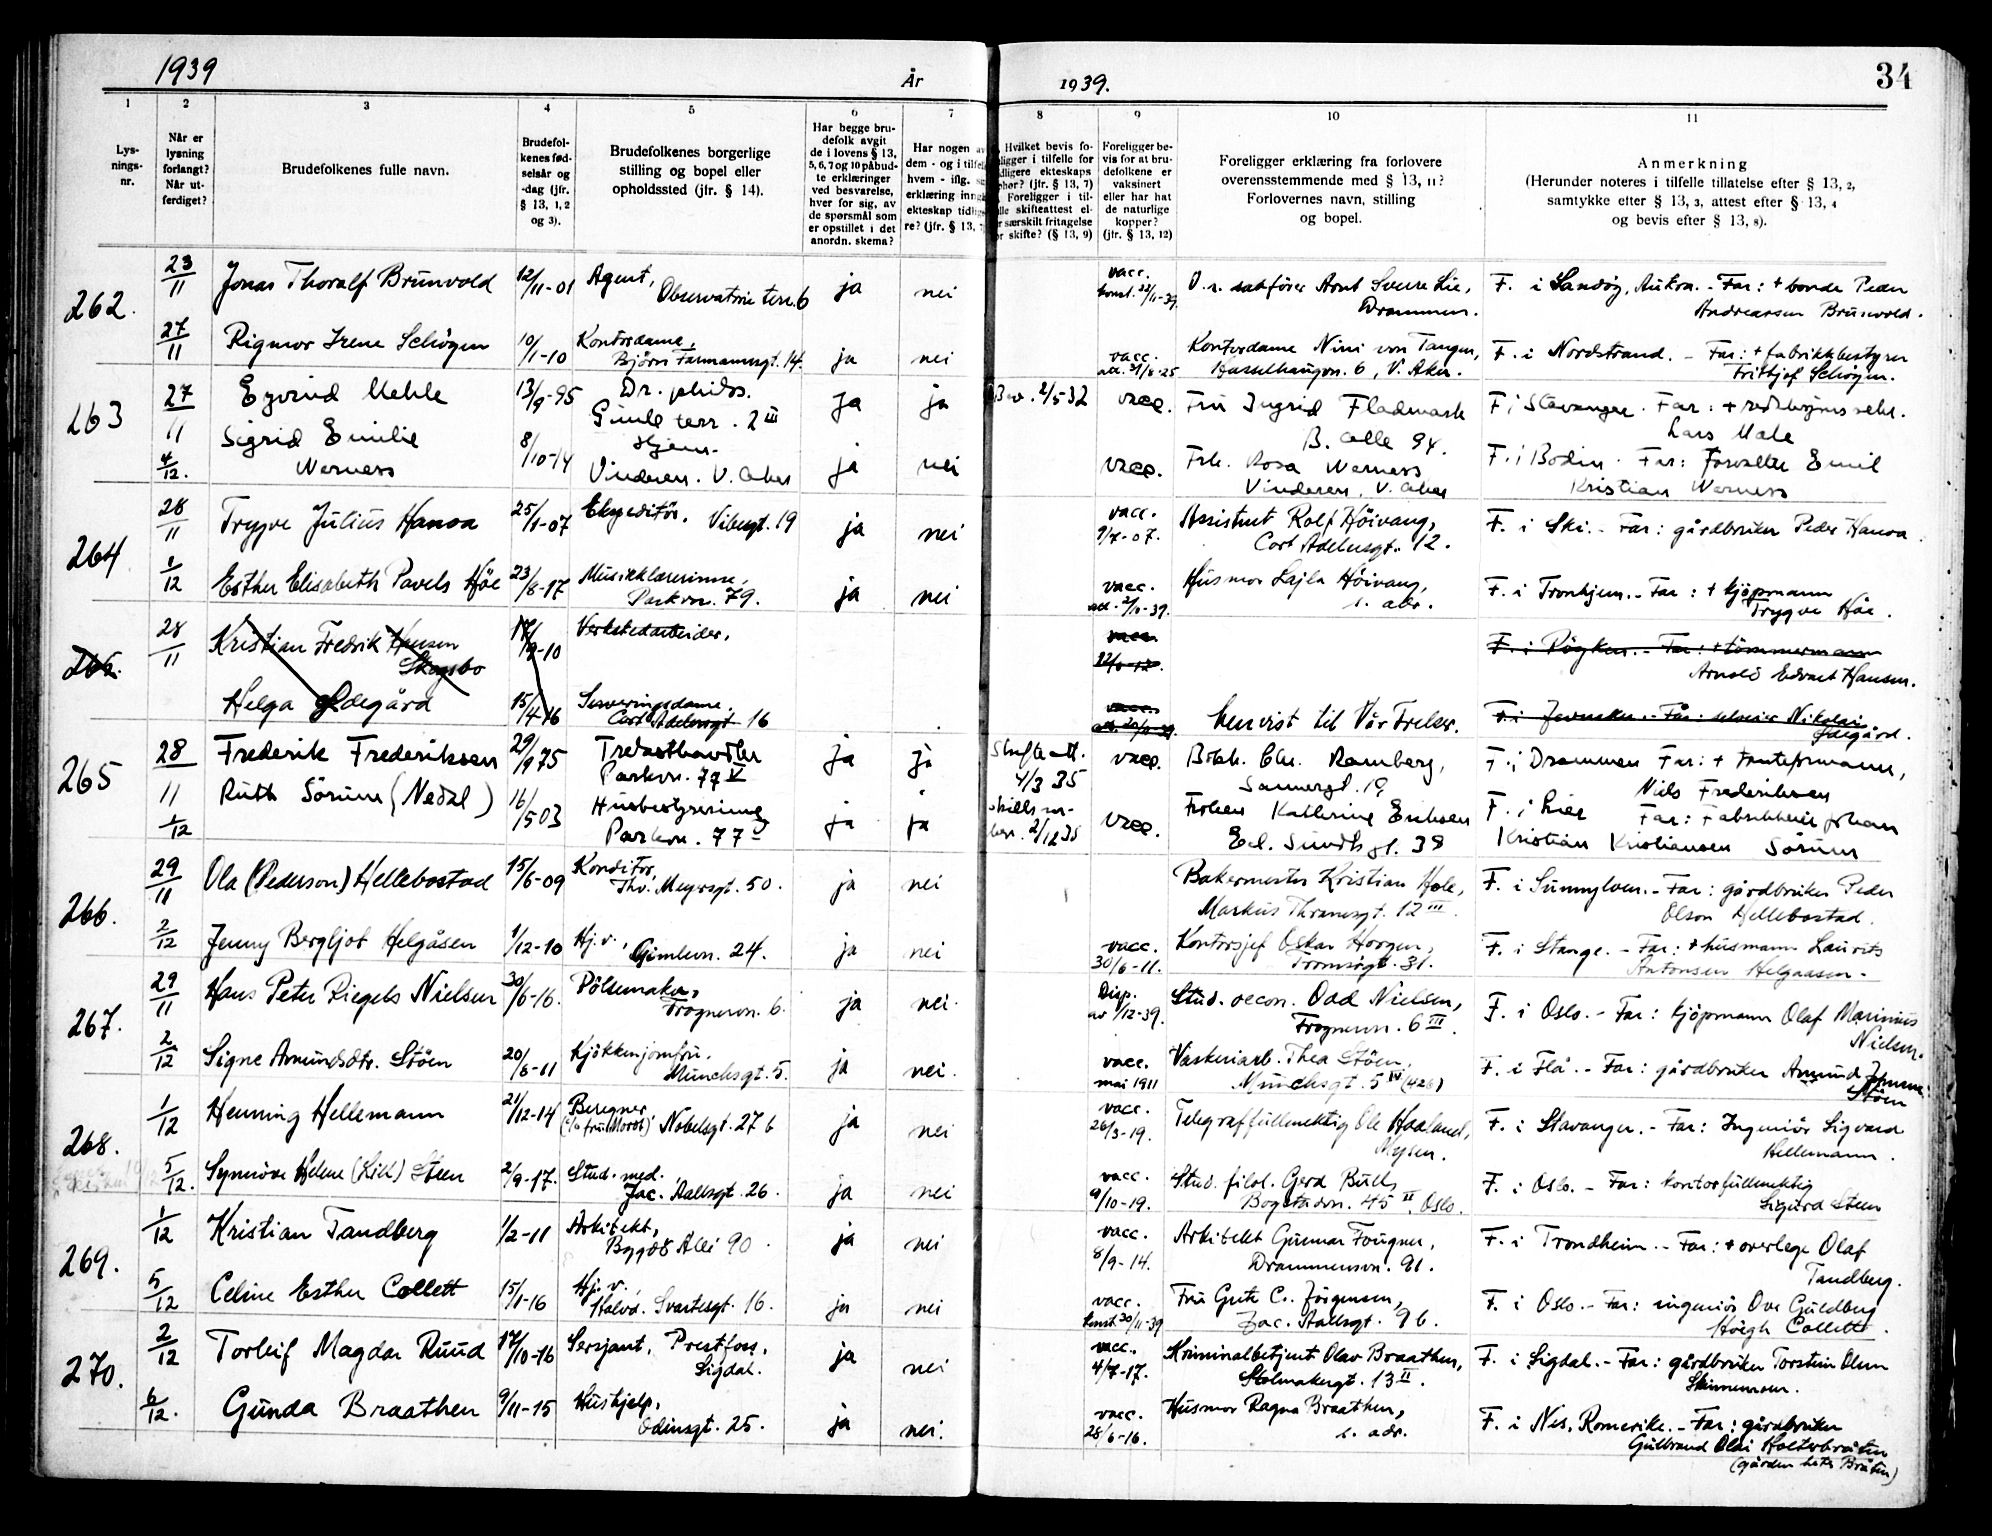 1939
År
1939.
34
1 2 3 4 5 6 7 8 9 10 11
Lys-
nings-
nr.
Når er
lysning
forlangt?
Når ut-
ferdiget?
Brudefolkenes fulle navn.
Brudefol-
kenes fød-
selsår og
-dag (jfr.
§ 13, 1, 2
og 3).
Brudefolkenes borgerlige
stilling og bopel eller
opholdssted (jfr. § 14).
Har begge bru-
defolk avgit
de i lovens § 13,
5, 6, 7 og 10 påbud-
te erklæringer
ved besvarelse,
hver for sig, av
de spørsmål som
er opstillet i det
anordn. skema?
Har nogen a
dem - og i tilfel
hvem - iflg.
erklæring inng
ekteskap tidlig
re? (jfr. § 13,
Hvilket bevis fo-
ligger i tilfelle for
dligere ekteskaps
phør? (jfr. § 13, 7)
Foreligger i til-
lle skifteattest el-
r særskilt fritagelse
r skifte? (§ 13, 9)
Foreligger be-
vis for at bru-
defolkene er
vaksinert
eller har hat
de naturlige
kopper?
(jfr. § 13, 12)
Foreligger erklæring fra forlovere
overensstemmende med § 13, 11?
Forlovernes navn, stilling
og bopel.
Anmerkning
(Herunder noteres i tilfelle tillatelse efter § 13, 2,
samtykke efter § 13, 3, attest efter § 13, 4
og bevis efter § 13, 8).
262. 23/11 Jonas Thoralf Brunvold 12/11-01 Agent, ja nei vacc. O.r. sakfører Arnt Sverre Lie, F. i Sandøy, Aukra. - Far: + bonde Peder
Observatorie terr. 6 konst. 22/11-39 Drammen. Andreassen Brunvold.
27/11 Rigmor Irene Schøyen 10/1-10 Kontordame, ja nei vacc. Kontordame Nini von Tangen, F. i Nordstrand. - Far: + fabrikkbestyrer
Bjørn Farmannsgt. 14. att. 31/8-25 Hasselhaugvn. 6, V. Aker. Fritjof Schøyen.
263 27/11 Eyvind Mehle 13/9-95 Dr. philos. ja ja Bev. 2/5 32 vacc. Fru Ingrid Flademark F. i Stavanger. Far: +
Gimle terr. 2 III B. alle 94. Lars Male
4/12. Sigrid Emilie 8/10-14 Hjem. ja nei vacc. Frk. Rosa Werners F. i Bodin. Far: forvalter Emil
Werners Vinderen. V. Aker Vinderen, V. Aker Kristian Werners
264 28/11 Trygve Julius Hanoa 25/1-07 Ekspeditør, Vibesgt. 19 ja nei vacc. Assistent Rolf Höivang, F. i Ski. - Far: gårdbruker Peder Hanoa.
9/7-07. Cort Adelersgt. 12.
1/12 Esther Elisabeth Pavels Höe 23/8-17 Musikklærerinne, ja nei vacc. Husmor Lajla Höivang, F. i Tronhjem. - Far: + kjöpmann
Parkvn. 79. att. 2/11-39. s. adr. Trygve Höe.
265. 28/11 Kristian Fredrik Hansen 17/9-10 Verkstedarbeider, vacc. F. i Röyken. - Far: + tömmermann
Skogsbo 22/6-12. Arnold Edvart Hansen.
Helga Ødegård 15/4-16 Serveringsdame. vacc. henvist til Vår Frelser. F. i Jevnaker. - Far: Nikolai
Cort Adelersgt 16 Ødegård.
265 28/11 Frederik Frederiksen 29/9 75 Trelasthandler ja ja Skifte att. vacc. Bokh. Chr. Ramberg, F. i Drammen Far: +
Parkvn. 77 V 4/3 35 Sannergt. 19 Niels Frederiksen
1/12 Ruth Sörum (Nedal) 16/5 03 Husbestyrerinne ja ja 2/12 35 vacc. Fröken Kathrine Eriksen F. i Lier Far: Johan
Parkvn. 77 V Eil. Sundts gt. 38 Kristian Kristiansen Sörum
266. 29/11 Ola (Pederson) Hellebostad 15/6-09 Konditor, ja nei Bakermester Kristian Hole, F. i Sunnylven. - Far: gårdbruker Peder
Thv. Meyersgt. 50. Markus Thranesgt. 12 III. Olson Hellebostad.
2/12 Jenny Bergljot Helgåsen 1/12-10 Hj. v., ja nei vacc. Kontorsjef Oskar Horgen, F. i Stange. - Far: + husmann Laurits
Gimlevn. 24. 30/6-11. Tromsögt. 31. Antonsen Helgaasen.
267. 29/11 Hans Peter Riegels Nielsen 30/6-16. Pölsemaker, ja nei. Disp. Stud. oecon. Odd Nielsen, F. i Oslo. - Far: kjöpmann Olaf Marinius
Frognervn. 6. av 1/12-39. Frognervn. 6 III. Nielsen.
2/12 Signe Amundsdtr. Stöen 20/6-11 Kjökkenjomfru. ja nei. vacc. Vaskeriarb. Thea Stöen, F. i Flå. - Far: gårdbruker Amund
Munchsgt. 5. mai 1911 Munchsgt. 5 IV (426) Stöen
268. 1/12 Henning Hellemann 21/12-14 Beregner, ja nei vacc. Telegraffullmektig Ole Haaland, F. i Stavanger. - Far: Ingeniör Sigvard
(c/o fru Mordt) Nobelsgt. 27 b 26/3-19. Mysen. Hellemann.
5/12. Synnöve Helene (Lill) Steen 2/9-17. Stud. med. ja nei vacc. Stud. filol. Gerd Bull, F. i Oslo. - Far: kontorfullmektig
Jac. Aallsgt. 26. 9/10-19. Bogstadvn. 45 II, Oslo. Sigurd Steen
269. 1/12 Kristian Tandberg 1/2-11 Arkitekt, ja nei vacc. Arkitekt Gunnar Fougner, F. i Trondheim. - Far: + overlege Olaf
Bygdö Alle 90. 8/9-14. Drammensvn. 91. Tandberg.
5/12 Celine Esther Collett 15/1-16 Hj. v., ja nei vacc. Fru Grete C. Jörgensen, F. i Oslo. - Far: ingeniör Ove Guldberg
Halvd. Svartesgt. 16. konst. 30/11-39 Jac. Aallsgt. 9 b. Höegh Collett.
270. 2/12 Torleif Magdar Ruud 17/10-16 Sersjant, Prestfoss, ja nei vacc. Kriminalbetjent Olav Braathen, F. i Sigdal. - Far: gårdbruker Torstein Olsen
Sigdal. 4/7-17. Stolmakergt. 13 II.
6/12. Gunda Braathen 9/11-15 Hushjelp, ja nei. vacc. Husmor Ragna Braathen, F. i Nes, Romerike. - Far: gårdbruker
Odinsgt. 25. 28/6-16. s. adr. Gulbrand Olai Holterbråten
(gården heter Bråten)